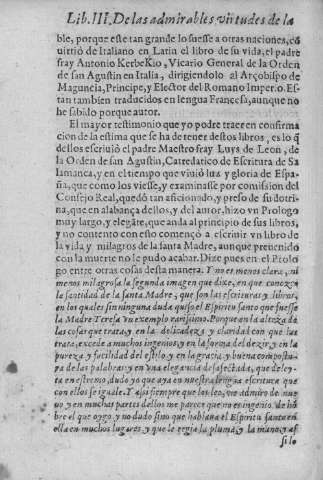 Lib. III. De las admirables virtudes de la
ble, porque este tan grande lo fuesse a otras naciones, cõ
uirtió de Italiano en Latin el libro de su vida, el padre
fray Antonio KerbeKio, Vicario General de la Orden
de san Agustin en Italia, dirigiendolo al Arçobispo de
Maguncia, Principe, y Elector del Romano Imperio. Es-
tan tambien traducidos en lengua Francesa, aunque no
he sabido por que autor.
El mayor testimonio que yo podre traer en confirma
cion de la estima que se ha de tener destos libros, es lo q̃
dellos escriuió el padre Maestro fray Luys de Leon, de
la Orden de san Agustin, Catredatico de Escritura de Sa
lamanca, y en el tiempo que viuió luz y gloria de Espa-
ña, que como los viesse, y examinasse por comission del
Consejo Real, quedó tan aficionado, y preso de su dotri-
na, que en alabança dellos, y del autor, hizo vn Prologo
muy largo, y elegãte, que anda al principio de sus libros,
y no contento con esto començó a escriuir vn libro de
la vida y milagros de la santa Madre, aunque preuenido
con la muerte no le pudo acabar. Dize pues en el Prolo
go entre otras cosas desta manera. Y no es menos clara, ni
menos milagrosa la segunda imagen que dixe, en que conozco
la santidad de la santa Madre, que son las escrituras y libros,
en los quales sin ninguna duda quiso el Espiritu santo que fuesse
la Madre Teresa vn exemplo rarissimo. Porque en la alteza de
las cosas que trata, y en la delicadeza y claridad con que las
trata, excede a muchos ingenios, y en la forma del dezir, y en la
pureza y facilidad del estilo, y en la gracia y buena compostu-
ra de las palabras, y en vna elegancia desafectada, que deley-
ta en estremo, dudo yo que aya en nuestra lengua escritura que
con ellos se iguale. Y assi siempre que los leo, me admiro de nue
uo, y en muchas partes dellos me parece que no es ingenio de hõ
bre el que oygo, y no dudo sino que hablaua el Espiritu santo en
ella en muchos lugares, y que le regia la pluma, y la mano, y assi
si lo